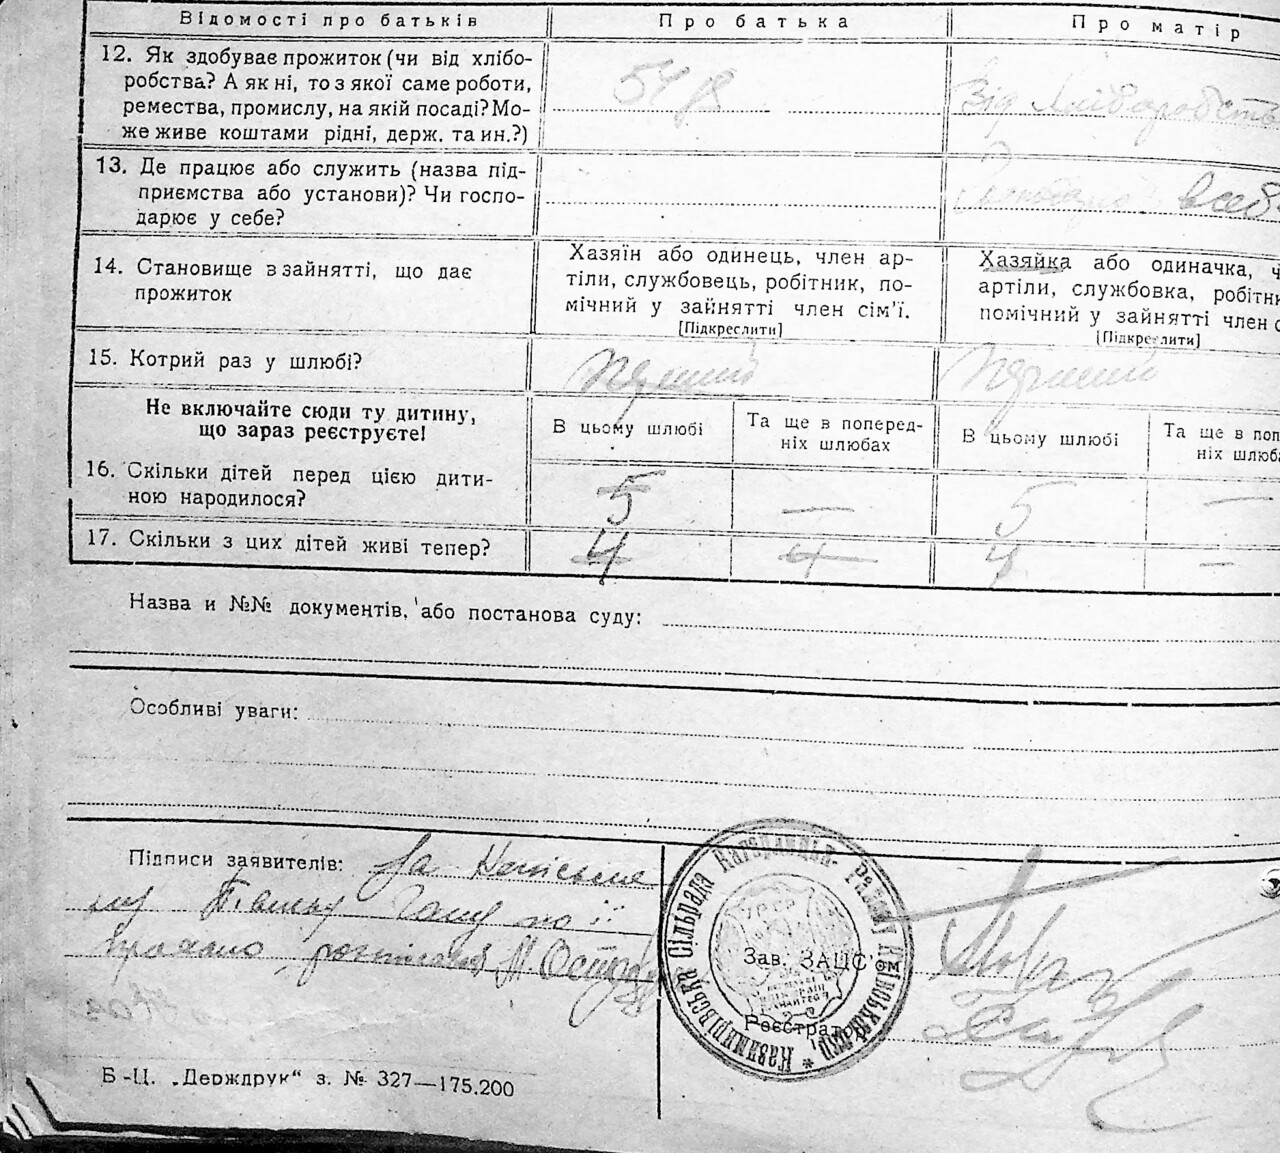 Відомості про батьків Про батька Про матір
12. Як здобуває прожиток (чи від хлібо-
робства? А як ні, то з якої саме роботи,
ремества, промислу, на якій посаді? Мо-
же живе коштами рідні, держ. та ин.?)
Від хліборобств
13. Де працює або служить (назва під-
приємства або установи)? Чи госпо-
дарює у себе?
14. Становище в зайнятті, що дає
прожиток
Хазяїн або одинець, член ар-
тіли, службовець, робітник, по-
мічний у зайнятті член сім’ї.
[Підкреслити]
Хазяйка або одиначка, ч
артіли, службовка, робітн
помічний у зайнятті член с
[Підкреслити]
15. Котрий раз у шлюбі?
Перший Перший
Не включайте сюди ту дитину,
що зараз реєструєте!
В цьому шлюбі
Та ще в поперед-
ніх шлюбах
В цьому шлюбі
Та ще в поп
ніх шлюба
16. Скільки дітей перед цією дити-
ною народилося?
5 — 5 —
17. Скільки з цих дітей живі тепер?
4 4 —
Назва и №№ документів, або постанова суду:
Особливі уваги:
Підписи заявителів: За
її
Казимирівська Сільрада Кагарлицьк. Район Київськ.
УРСР
Зав. ЗАЦС’ом
Реєстратор
Б-Ц. „Держдрук“ з. № 327—175.200